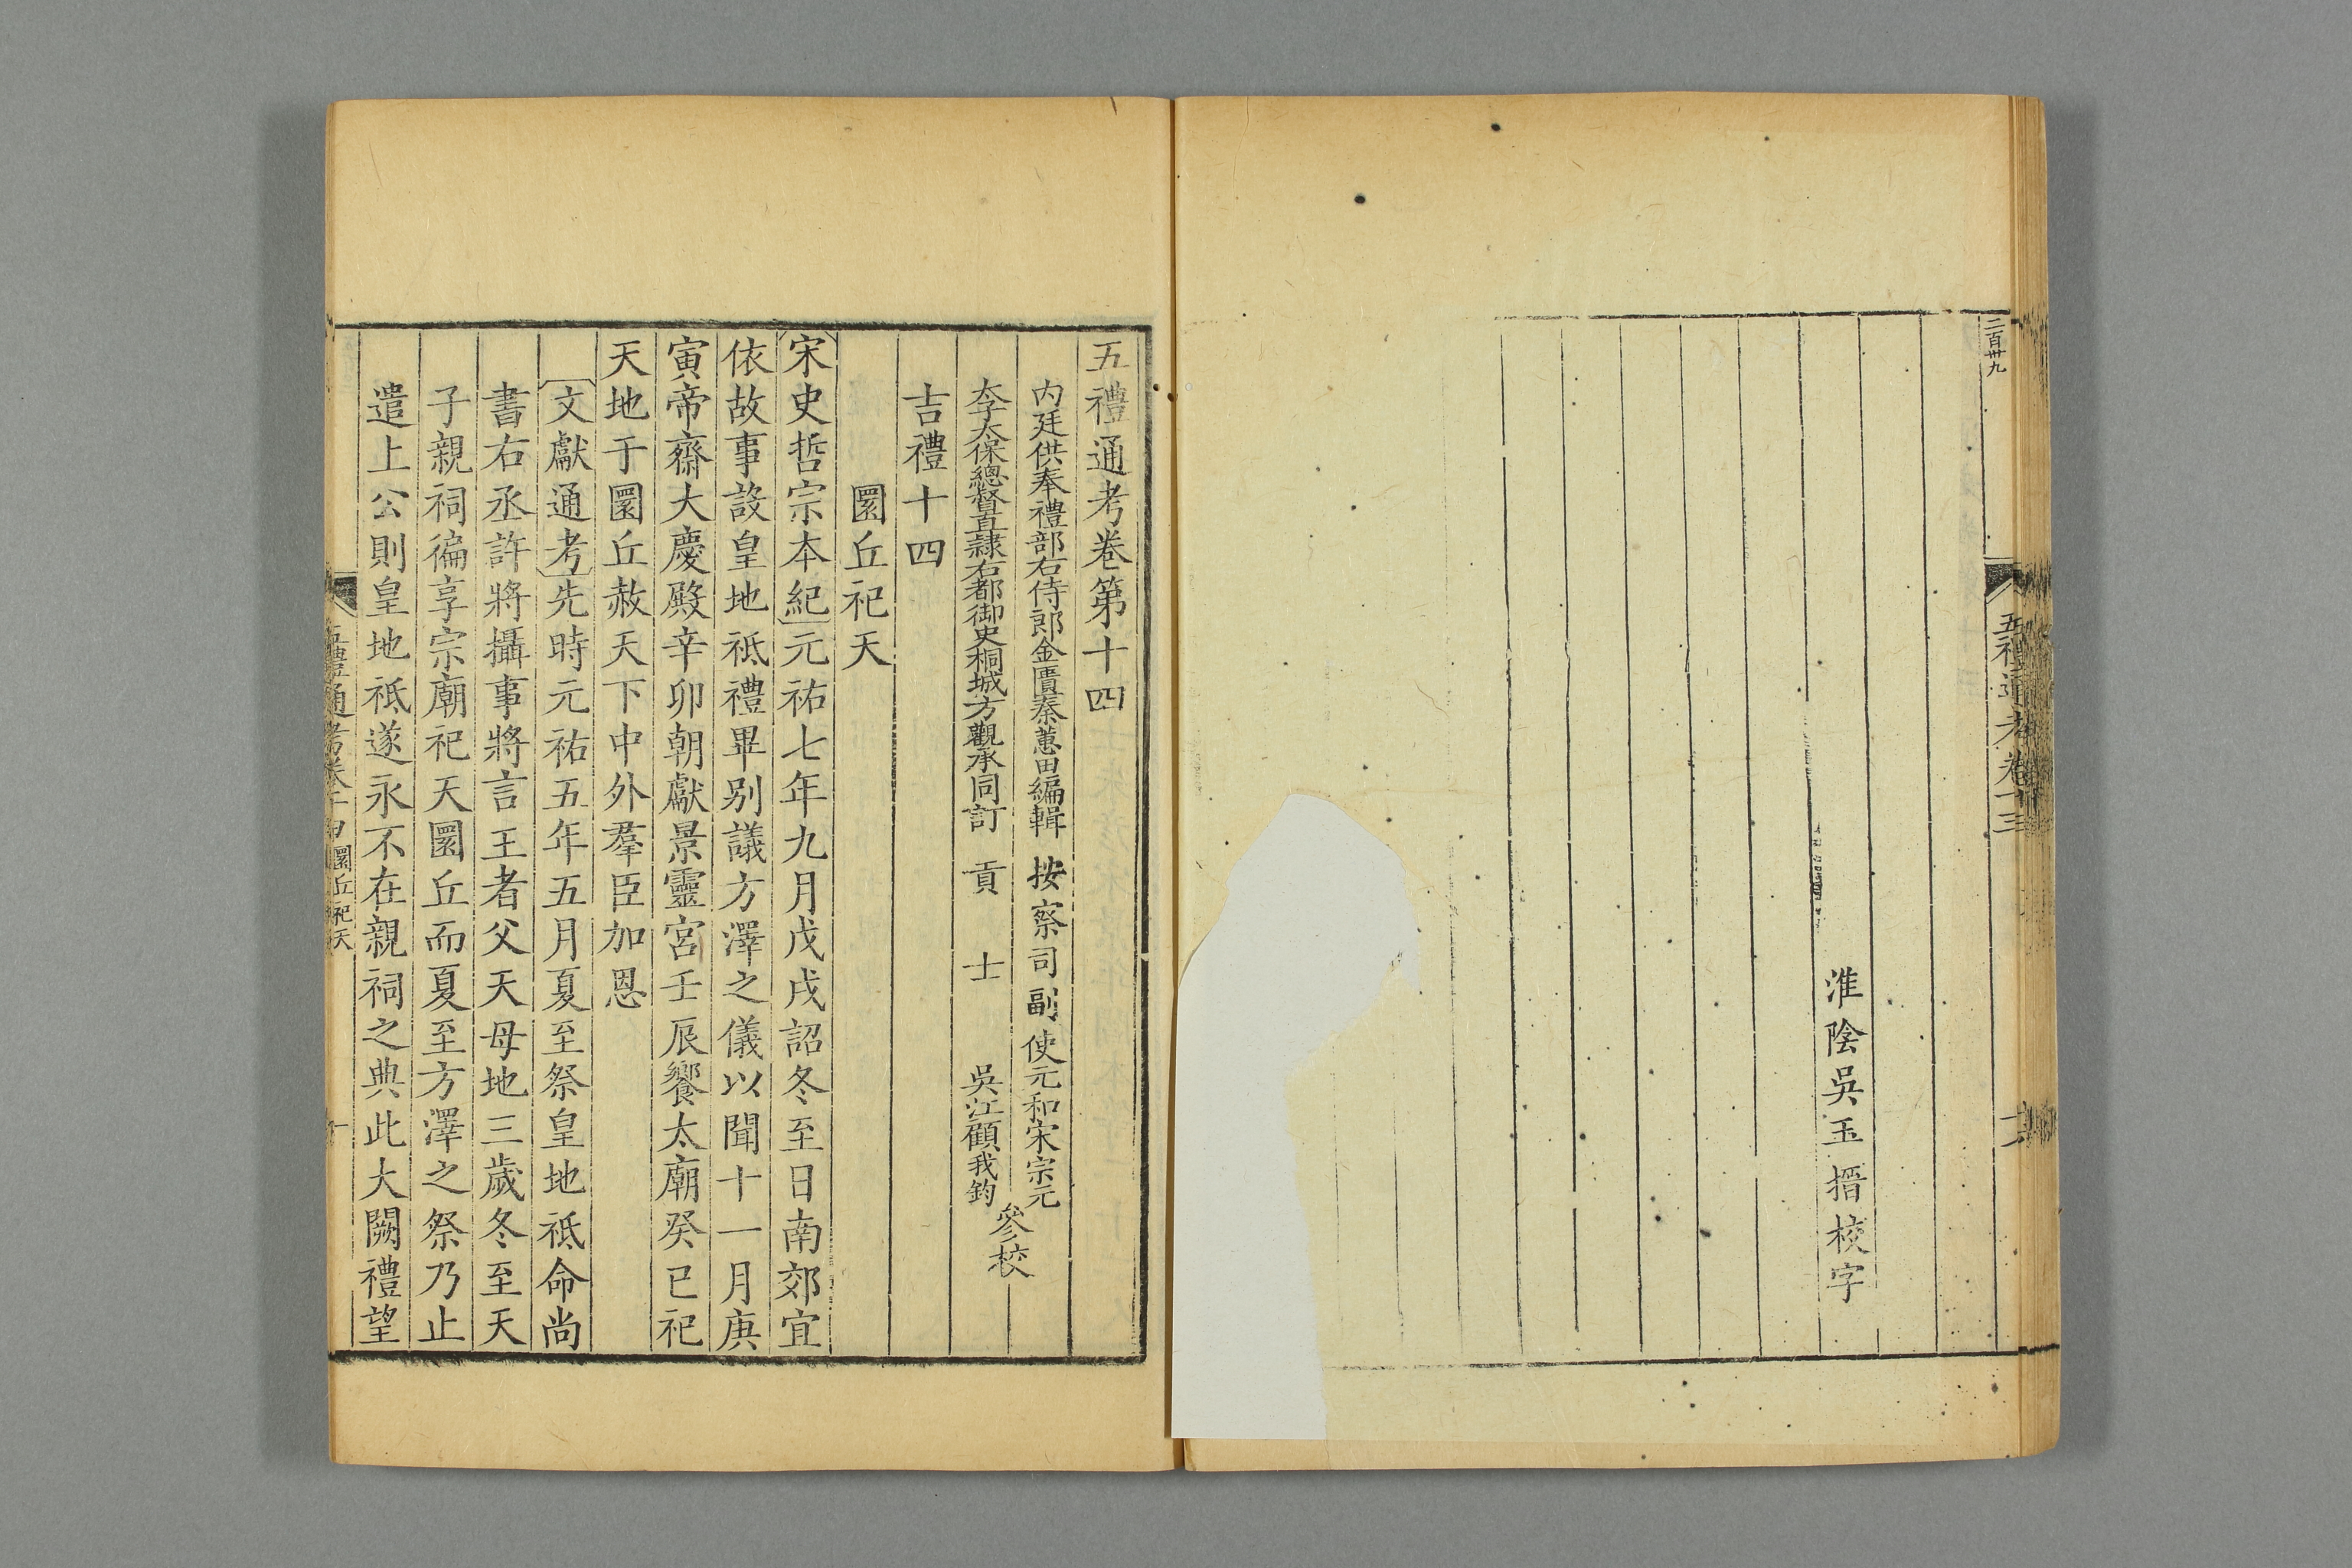 二百卌九
五禮通考卷十三
淮陰吳玉搢校字
五禮通考卷第十四
内廷供奉禮部右侍郎金匱秦蕙田編輯 按察司副使元和宋宗元
太子太保總督直隸右都御史桐城方觀承同訂 貢士吳江顧我鈞
參校
吉禮十四
圜丘祀天
宋史哲宗本紀元祐七年九月戊戌詔冬至日南郊宜
依故事設皇地祇禮畢别議方澤之儀以聞十一月庚
寅帝齋大慶殿辛卯朝獻景靈宮壬辰饗太廟癸巳祀
天地于圜丘赦天下中外羣臣加恩
文獻通考先時元祐五年五月夏至祭皇地祇命尚
書右丞許將攝事將言王者父天母地三歲冬至天
子親祠徧享宗廟祀天圜丘而夏至方澤之祭乃止
遣上公則皇地祇遂永不在親祠之典此大闕禮望
五禮通考卷十四圜丘祀天 一